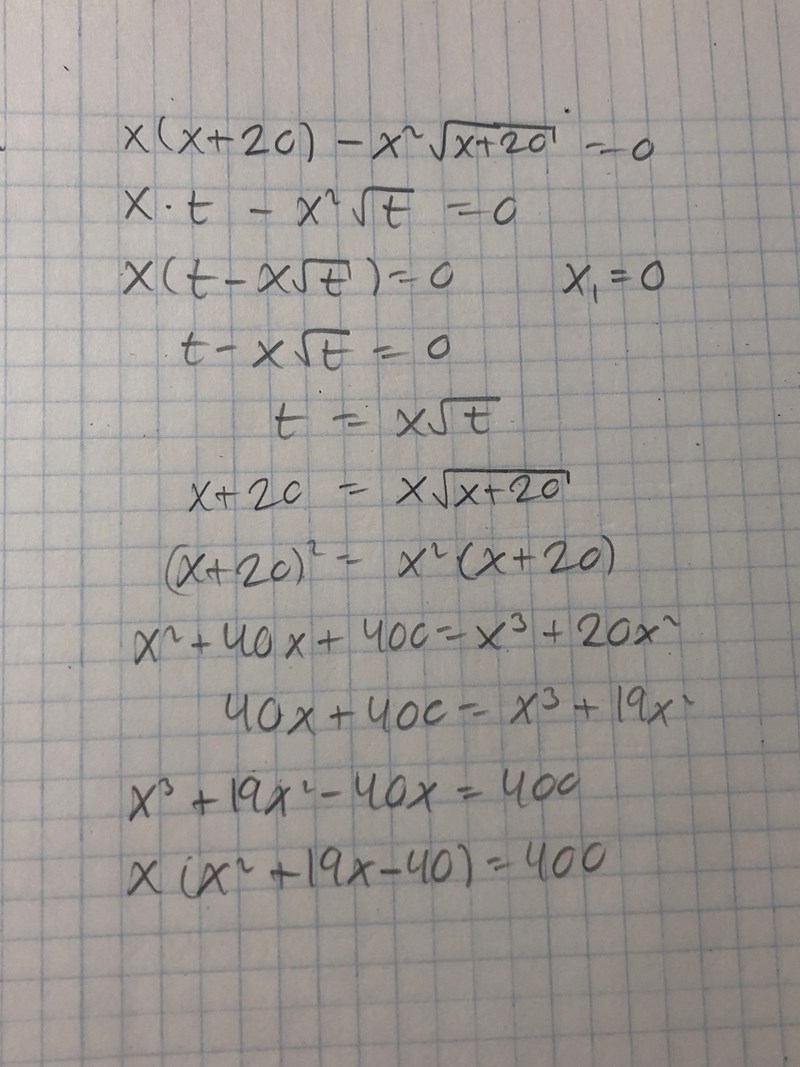 x(x+20) - x²√(x+20) = 0
x · t - x²√t = 0
x(t - x√t) = 0 x₁ = 0
t - x√t = 0
t = x√t
x+20 = x√(x+20)
(x+20)² = x²(x+20)
x² + 40x + 400 = x³ + 20x²
40x + 400 = x³ + 19x²
x³ + 19x² - 40x = 400
x(x² + 19x - 40) = 400